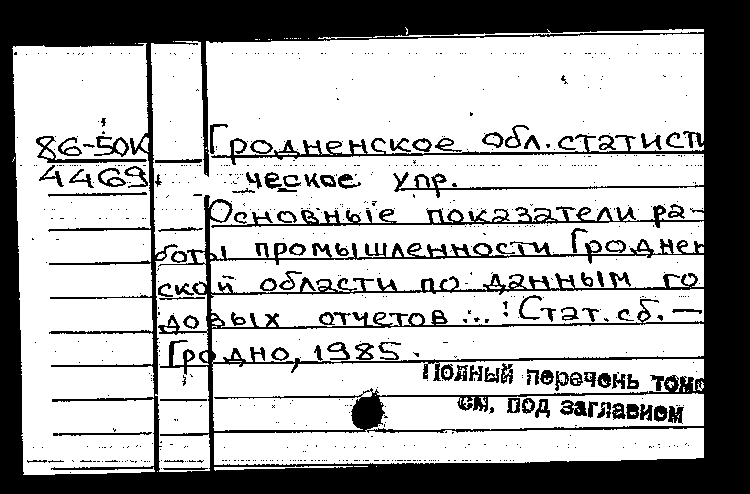 86-50К Гродненское обл.статисти
4469 ческое упр.
Основные показатели ра-
боты промышленности Гроднен
ской области по данным го
довых отчетов ... : Стат.сб. —
Гродно, 1985.
Полный перечень томо
см. под заглавием